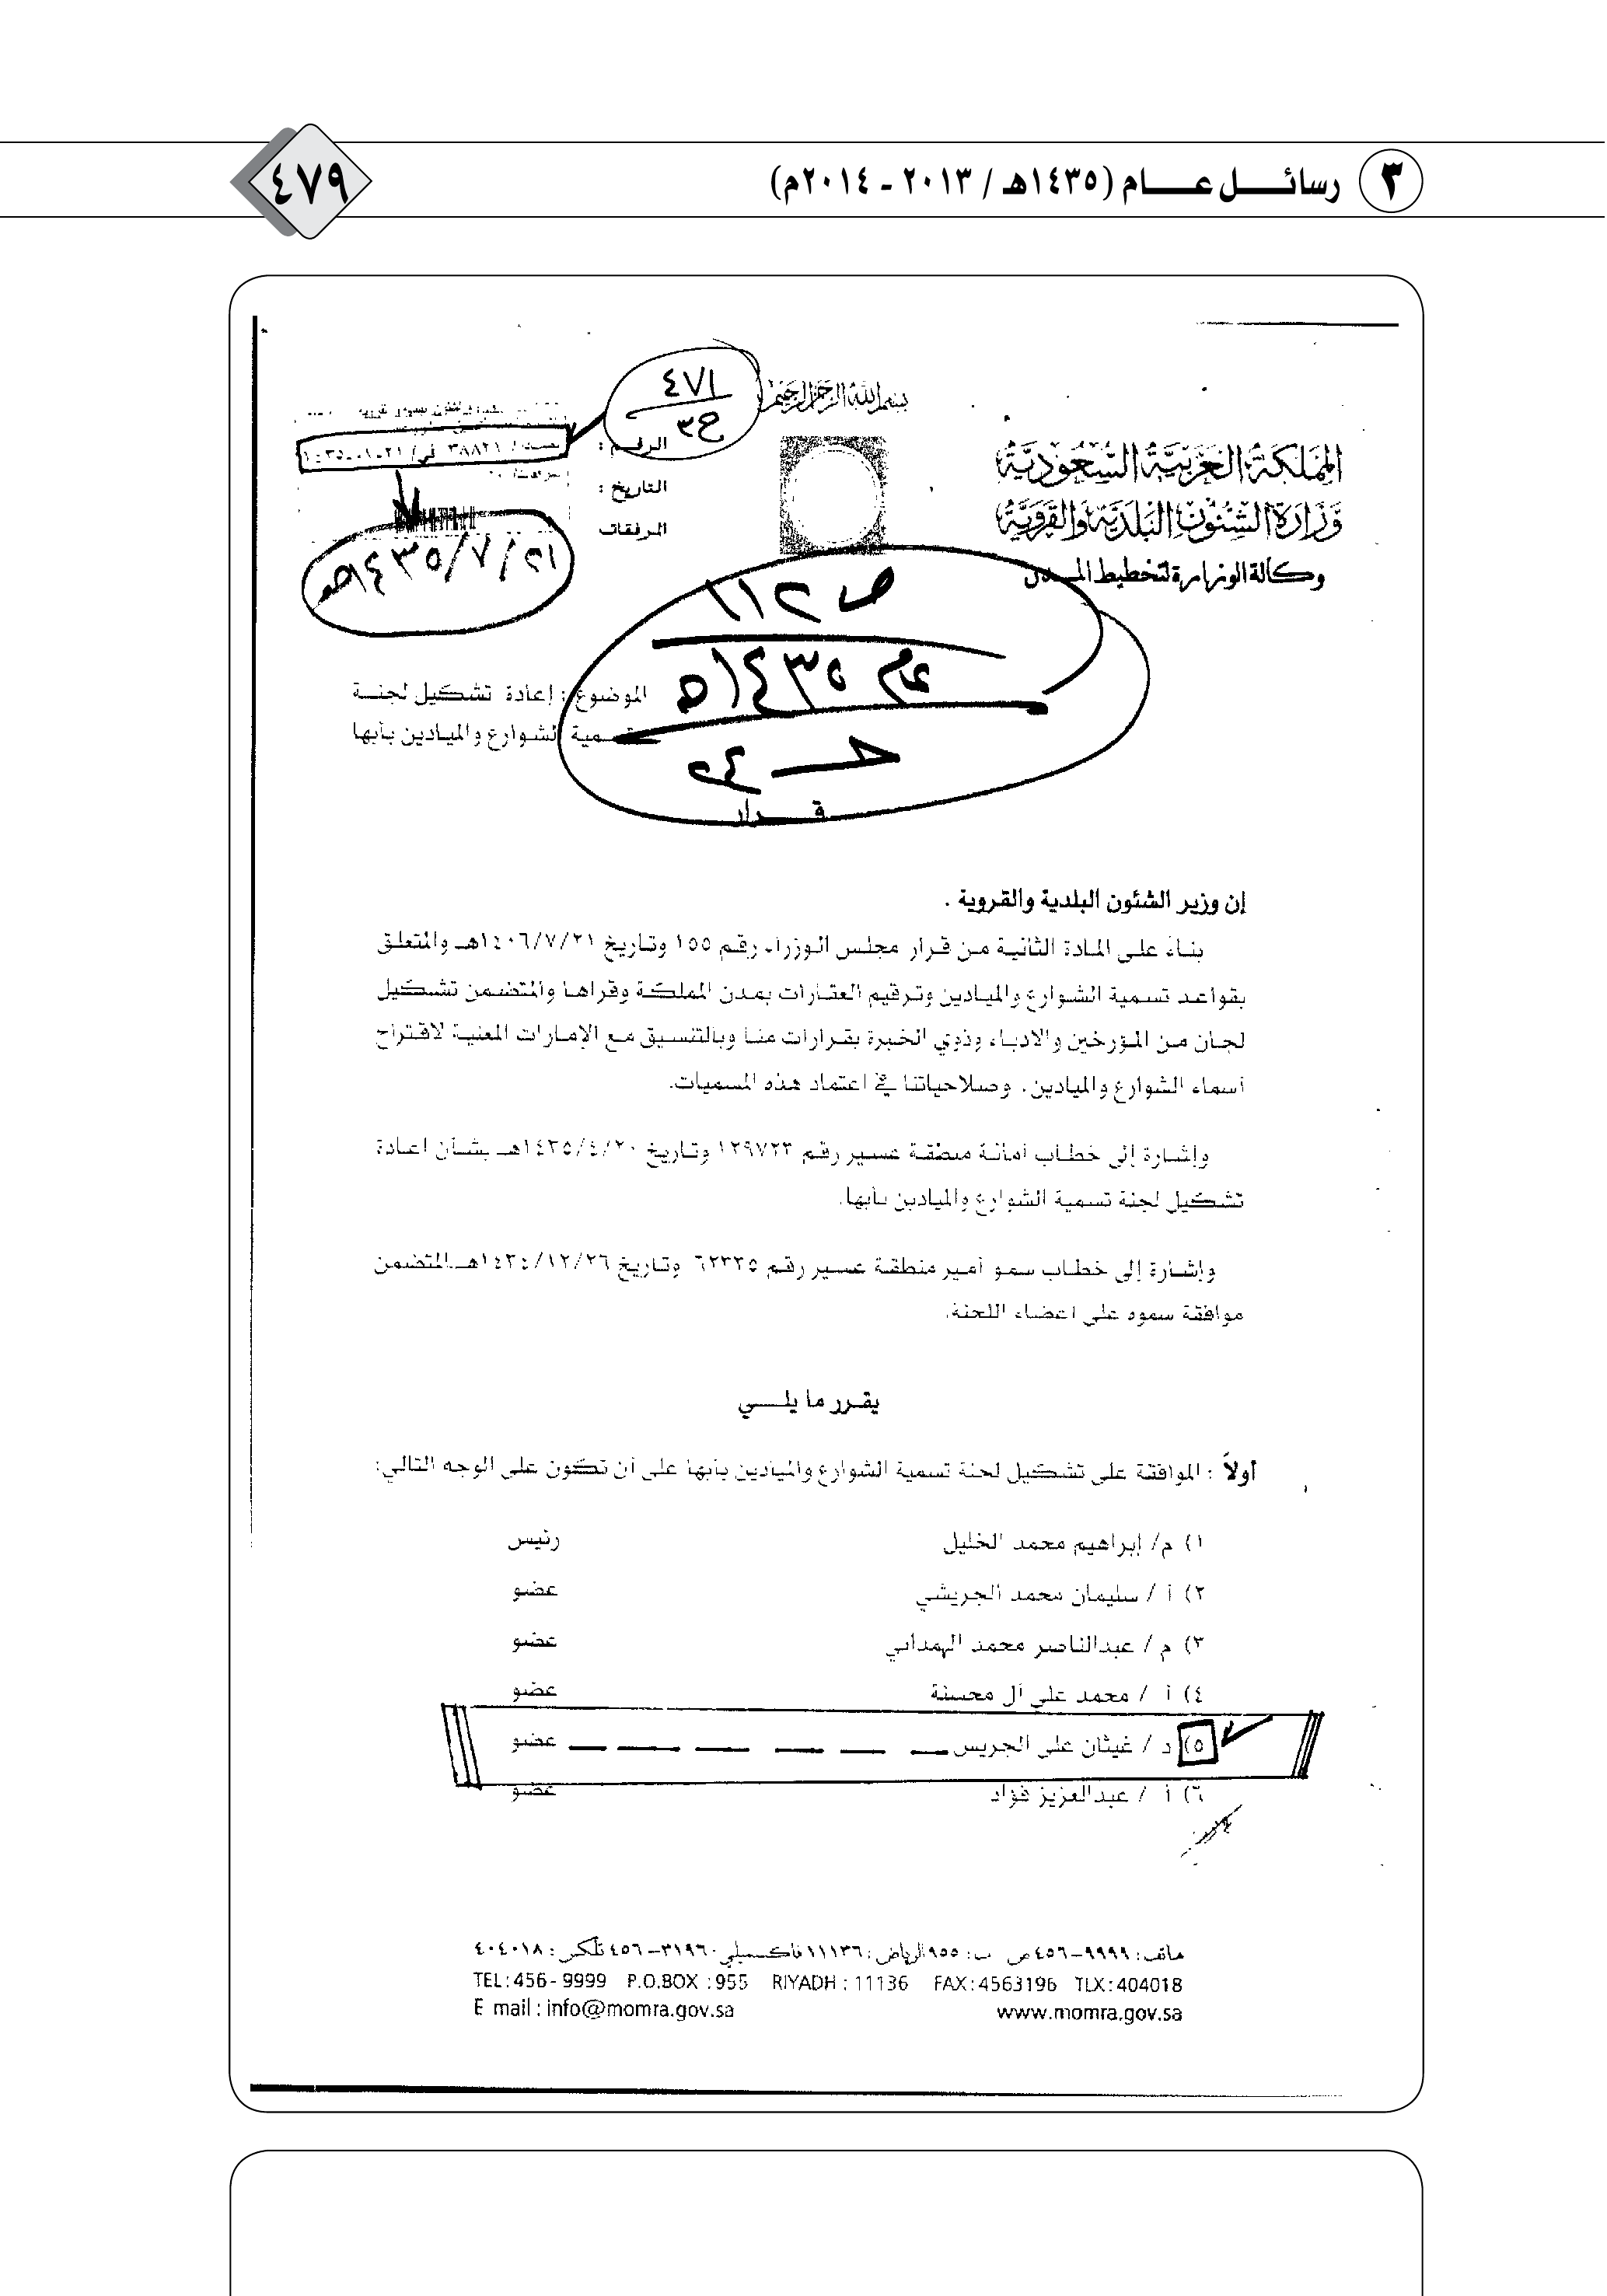 ٣ رسائــــل عــــــام (١٤٣٥هـ / ٢٠١٣ ـ ٢٠١٤م)
٤٧٩
بسم الله الرحمن الرحيم
٤٧١
ح٣
المملكة العربية السعودية
وزارة الشئون البلدية والقروية
وكالة الوزارة لتخطيط المدن
الرقم :
التاريخ :
المرفقات
٣٨٨٢١ في/ ٢١-٠١-١٤٣٥
٢١/٧/١٤٣٥هـ
ص ١١٢
عام ١٤٣٥هـ
حـ ٢٤
الموضوع : إعادة تشكيل لجنــة
تسمية الشوارع والميادين بأبها
قــــرار
إن وزير الشئون البلدية والقروية .
بناءً على المادة الثانية من قرار مجلس الوزراء رقم ١٥٥ وتاريخ ١٤٠٦/٧/٢١هـ والمتعلق
بقواعد تسمية الشوارع والميادين وترقيم العقارات بمدن المملكة وقراها والمتضمن تشكيل
لجان من المؤرخين والادباء وذوي الخبرة بقرارات منا وبالتنسيق مع الإمارات المعنية لاقتراح
أسماء الشوارع والميادين . وصلاحياتنا في اعتماد هذه المسميات.
وإشارة إلى خطاب أمانة منطقة عسير رقم ١٢٩٧٢٣ وتاريخ ١٤٣٥/٤/٢٠هـ بشأن اعادة
تشكيل لجنة تسمية الشوارع والميادين بأبها.
وإشارة إلى خطاب سمو أمير منطقة عسير رقم ٦٢٣٣٥ وتاريخ ١٤٣٤/١٢/٢٦هـ المتضمن
موافقة سموه على اعضاء اللجنة.
يقـرر ما يلـــي
أولاً : الموافقة على تشكيل لجنة تسمية الشوارع والميادين بأبها على أن تكون على الوجه التالي:
١) م/ إبراهيم محمد الخليل رئيس
٢) أ / سليمان محمد الجريشي عضو
٣) م / عبدالناصر محمد الهمداني عضو
٤) أ / محمد علي آل محسنة عضو
٥) د / غيثان علي الجريس عضو
٦) أ / عبدالعزيز فؤاد عضو
هاتف: ٩٩٩٩-٤٥٦ ص ب: ٩٥٥ الرياض: ١١١٣٦ فاكسميلي ٣١٩٦-٤٥٦ تلكس: ٤٠٤٠١٨
TEL:456-9999 P.O.BOX :955 RIYADH : 11136 FAX:4563196 TLX:404018
E mail : info@momra.gov.sa www.momra.gov.sa